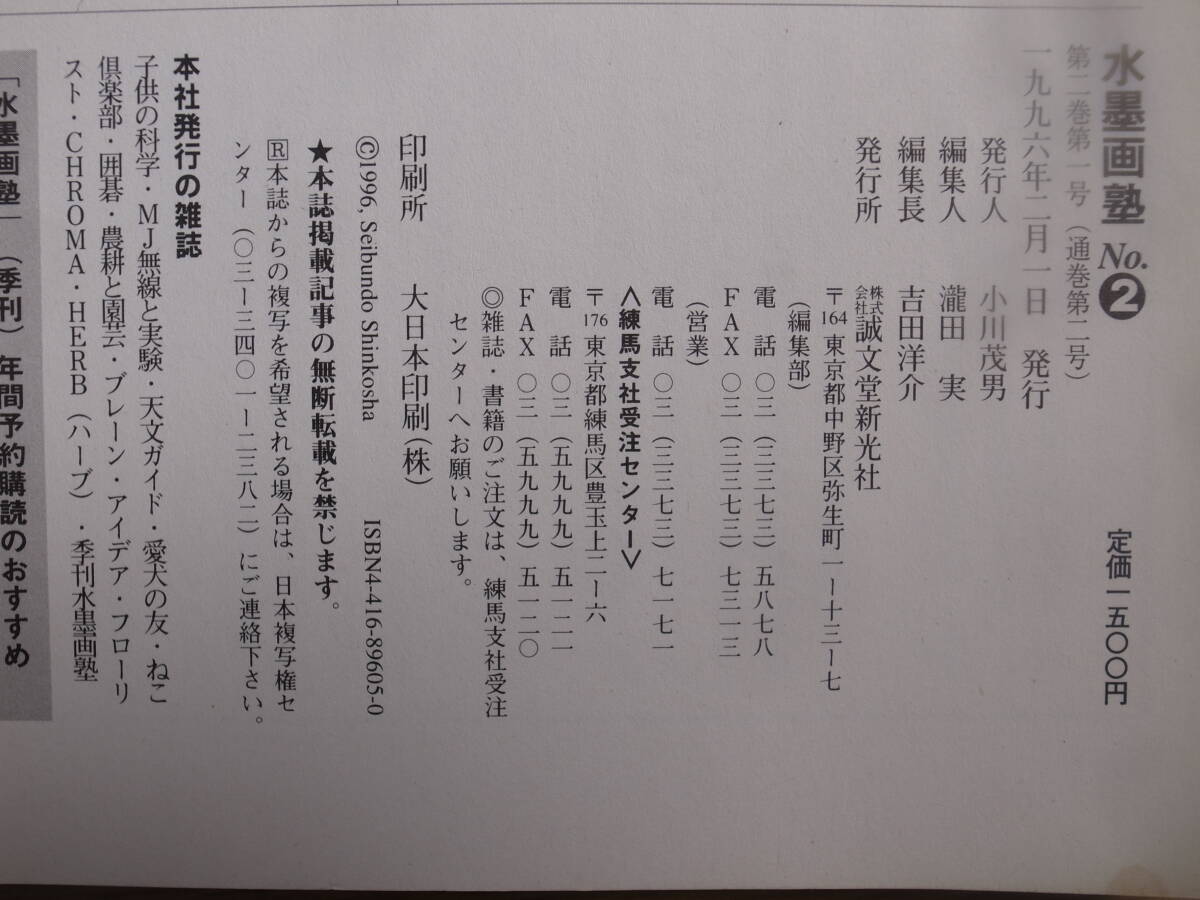 水墨画塾 No.❷
第二巻第一号(通巻第二号)
定価一五〇〇円
一九九六年二月一日 発行
発行人 小川茂男
編集人 瀧田 実
編集長 吉田洋介
発行所 株式会社誠文堂新光社
〒164東京都中野区弥生町一ー十三ー七
(編集部)
電 話 〇三(三三七三)五八七八
FAX 〇三(三三七三)七三一三
(営業)
電 話 〇三(三三七三)七一七一
〈練馬支社受注センター〉
〒176東京都練馬区豊玉上二ー六
電 話 〇三(五九九九)五一二一
FAX 〇三(五九九九)五一二〇
◎雑誌・書籍のご注文は、練馬支社受注
センターへお願いします。
印刷所 大日本印刷(株)
©1996, Seibundo Shinkosha ISBN4-416-89605-0
★本誌掲載記事の無断転載を禁じます。
🅁本誌からの複写を希望される場合は、日本複写権セ
ンター(〇三ー三四〇一ー二三八二)にご連絡下さい。
本社発行の雑誌
子供の科学・MJ無線と実験・天文ガイド・愛犬の友・ねこ
倶楽部・囲碁・農耕と園芸・ブレーン・アイデア・フローリ
スト・CHROMA・HERB(ハーブ)・季刊水墨画塾
「水墨画塾」(季刊)年間予約購読のおすすめ